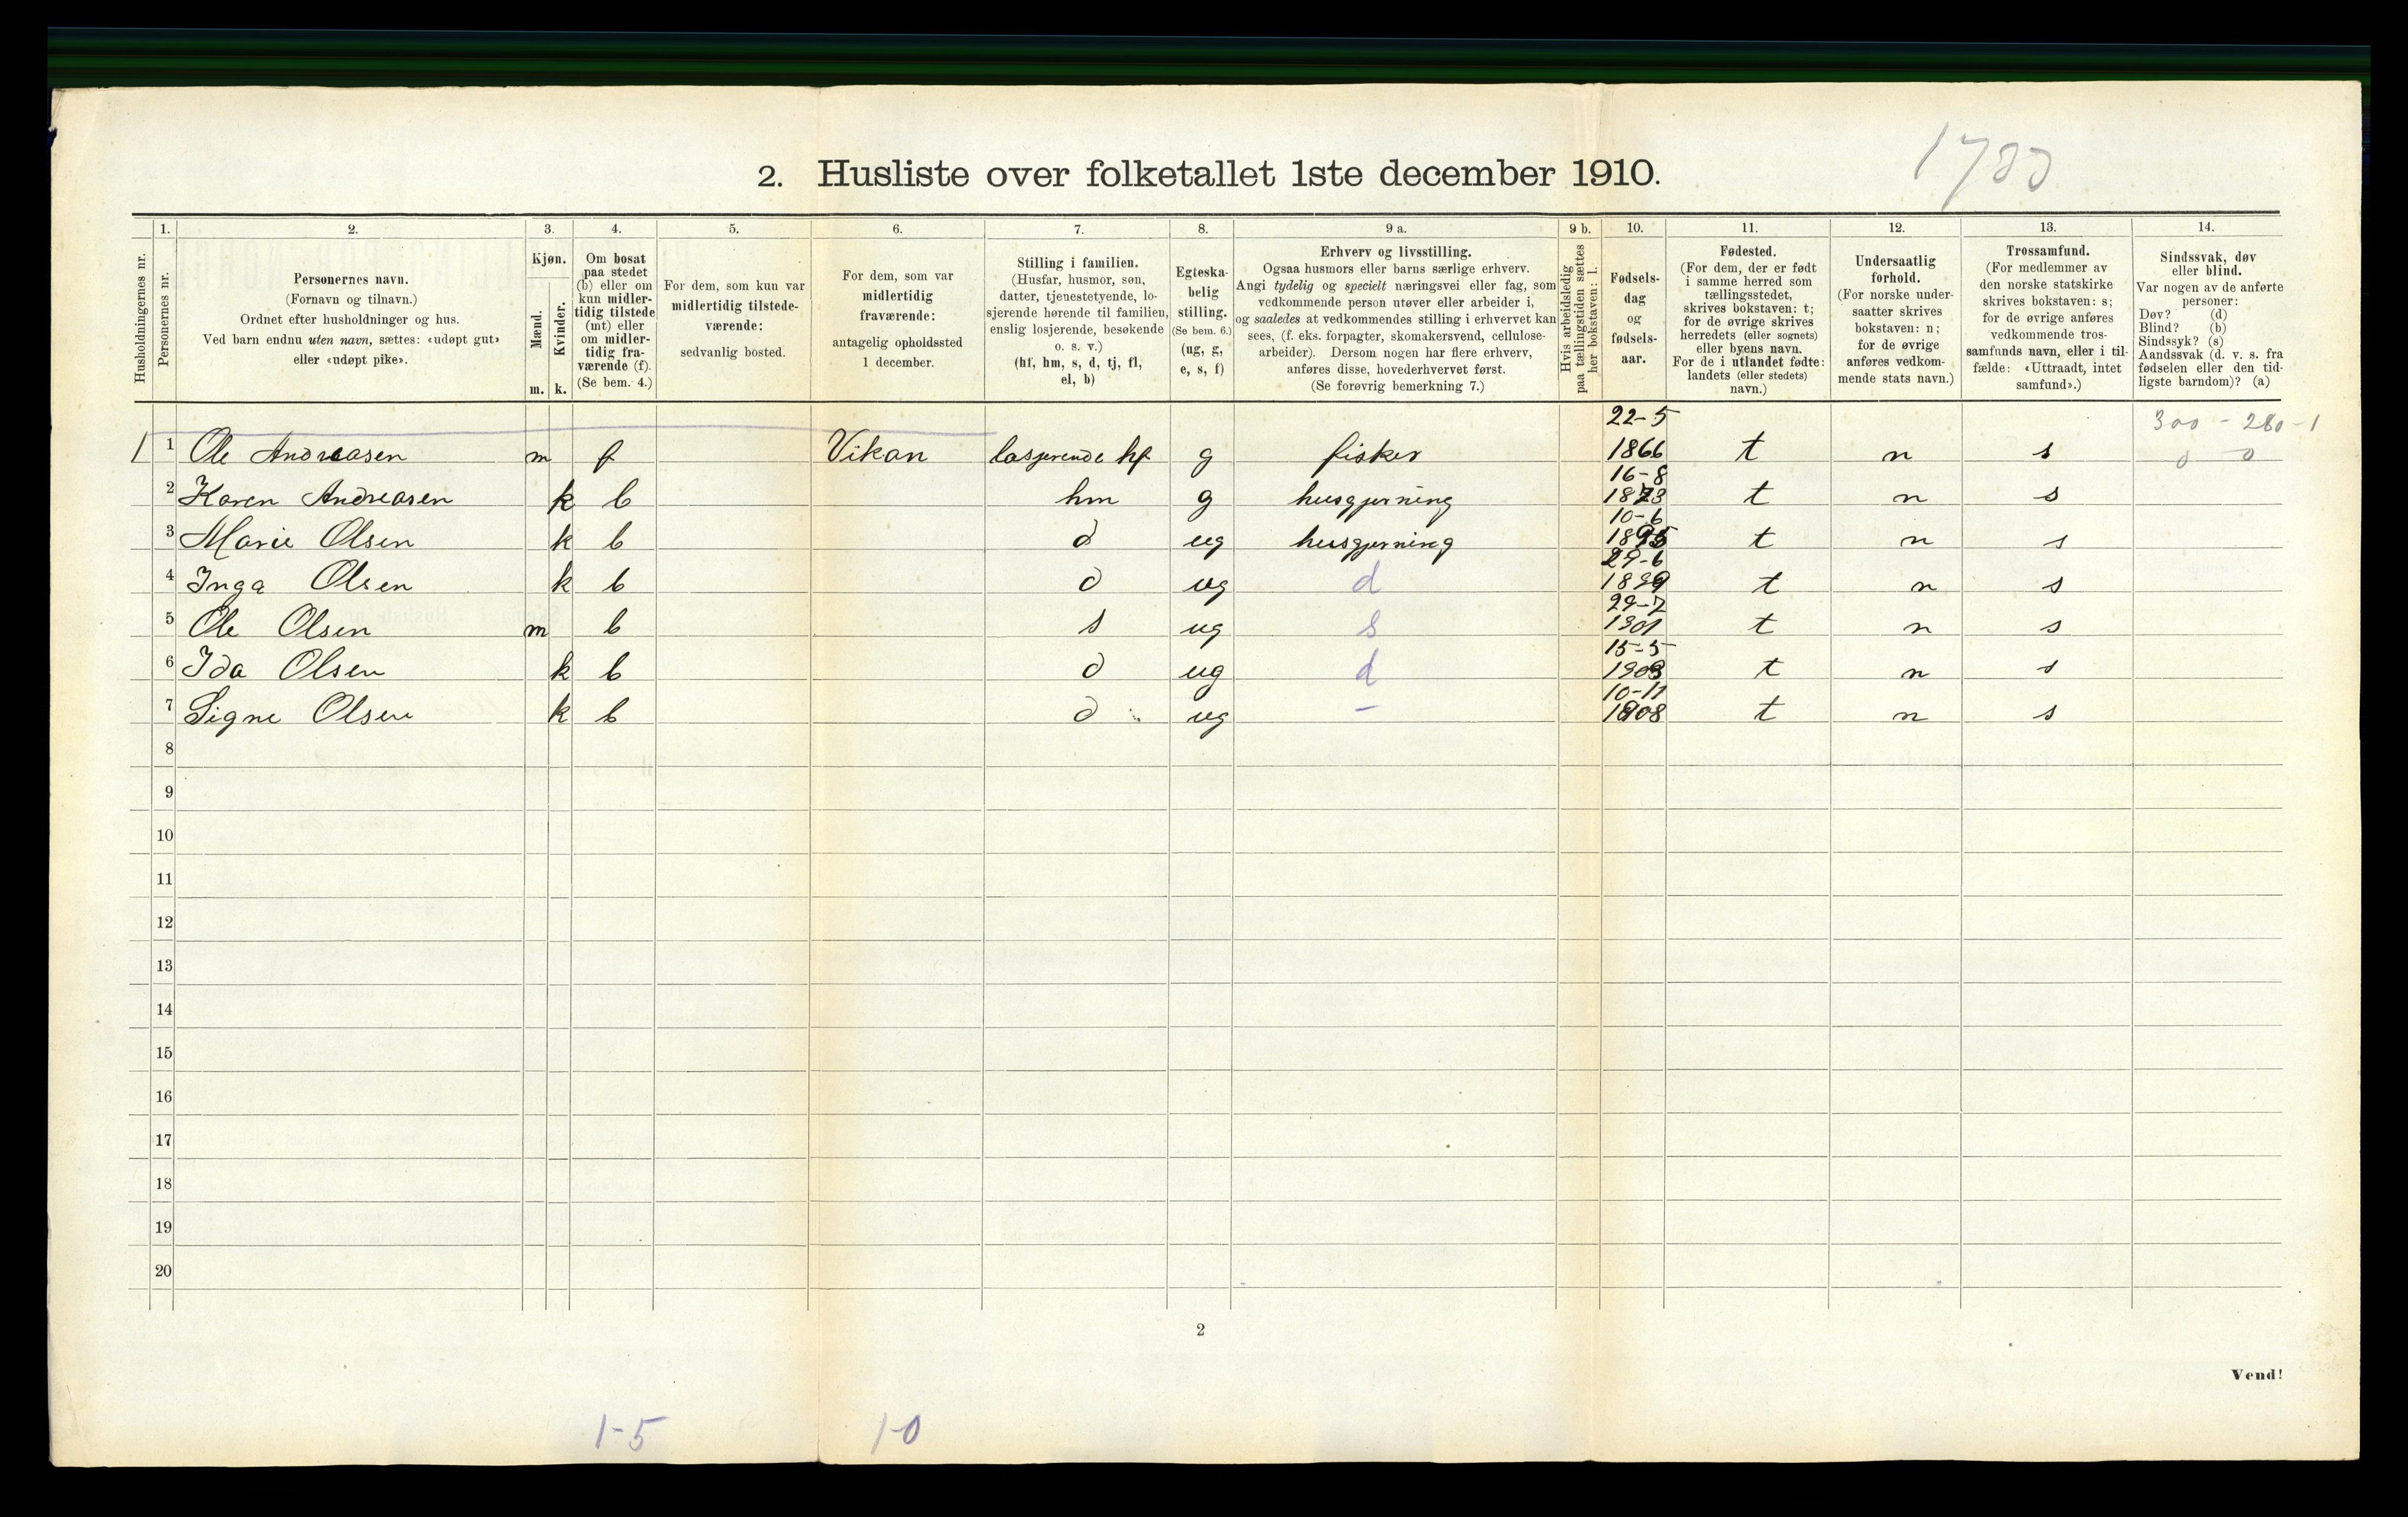 1783
2. Husliste over folketallet 1ste december 1910.
Husholdningernes nr.
1.
Personernes nr.
2.
Personernes navn.
(Fornavn og tilnavn.)
Ordnet efter husholdninger og hus.
Ved barn endnu uten navn, sættes: «udøpt gut»
eller «udøpt pike».
3.
Kjøn.
Mænd.
m.
Kvinder.
k.
4.
Om bosat
paa stedet
(b) eller om
kun midler-
tidig tilstede
(mt) eller
om midler-
tidig fra-
værende (f).
(Se bem. 4.)
5.
For dem, som kun var
midlertidig tilstede-
værende:
sedvanlig bosted.
6.
For dem, som var
midlertidig
fraværende:
antagelig opholdssted
1 december.
7.
Stilling i familien.
(Husfar, husmor, søn,
datter, tjenestetyende, lo-
sjerende hørende til familien,
enslig losjerende, besøkende
o. s. v.)
(hf, hm, s, d, tj, fl,
el, b)
8.
Egteska-
belig
stilling.
(Se bem. 6.)
(ug, g,
e, s, f)
9 a.
Erhverv og livsstilling.
Ogsaa husmors eller barns særlige erhverv.
Angi tydelig og specielt næringsvei eller fag, som
vedkommende person utøver eller arbeider i,
og saaledes at vedkommendes stilling i erhvervet kan
sees, (f. eks. forpagter, skomakersvend, cellulose-
arbeider). Dersom nogen har flere erhverv,
anføres disse, hovederhvervet først.
(Se forøvrig bemerkning 7.)
9 b.
Hvis arbeidsledig
paa tællingstiden sættes
her bokstaven: l.
10.
Fødsels-
dag
og
fødsels-
aar.
11.
Fødested.
(For dem, der er født
i samme herred som
tællingsstedet,
skrives bokstaven: t;
for de øvrige skrives
herredets (eller sognets)
eller byens navn.
For de i utlandet fødte:
landets (eller stedets)
navn.)
12.
Undersaatlig
forhold.
(For norske under-
saatter skrives
bokstaven: n;
for de øvrige
anføres vedkom-
mende stats navn.)
13.
Trossamfund.
(For medlemmer av
den norske statskirke
skrives bokstaven: s;
for de øvrige anføres
vedkommende tros-
samfunds navn, eller i til-
fælde: «Uttraadt, intet
samfund».)
14.
Sindssvak, døv
eller blind.
Var nogen av de anførte
personer:
Døv? (d)
Blind? (b)
Sindssyk? (s)
Aandssvak (d. v. s. fra
fødselen eller den tid-
ligste barndom)? (a)
22-5 300 - 280-1
1 1 Ole Andreasen m f Vikan losjerende hf g fisker 1866 t n s 0 0
16-8
2 Karen Andreasen k b hm g husgjerning 1873 t n s
10-6
3 Marie Olsen k b d ug husgjerning 1895 t n s
29-6
4 Inga Olsen k b d ug d 1899 t n s
29-7
5 Ole Olsen m b s ug s 1901 t n s
15-5
6 Ida Olsen k b d ug d 1903 t n s
10-11
7 Signe Olsen k b d ug - 1908 t n s
8
9
10
11
12
13
14
15
16
17
18
19
20
2
Vend!
1-5 1-0